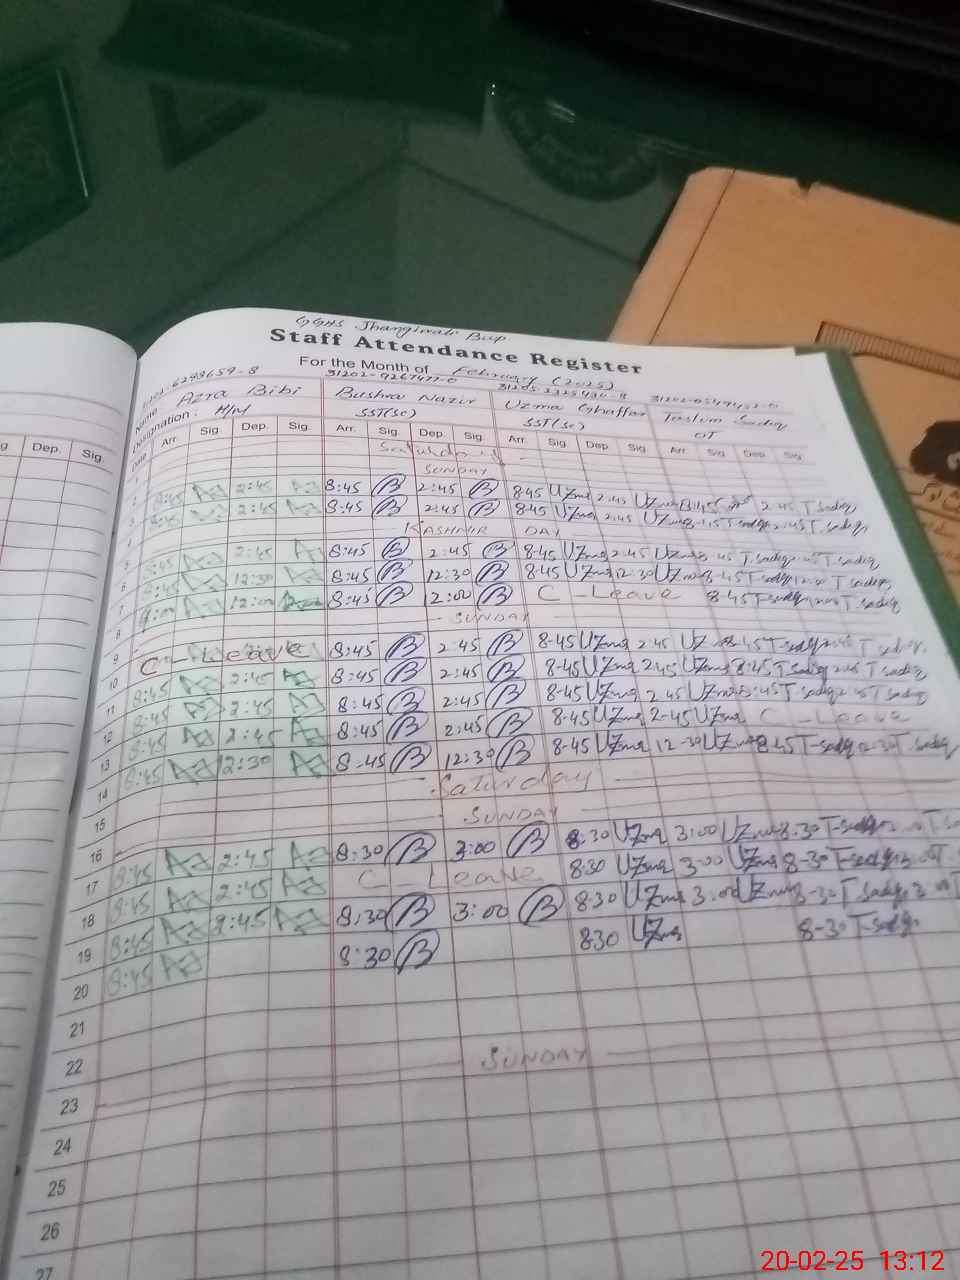 GGHS Jhangiwala Bwp
Staff Attendance Register
For the Month of February (2025)
31202-9267477-0
Name Azra Bibi Bushra Nazir Uzma Ghaffar Taslim Sadiq
Designation: H/M SST(Sc) SST(Sc) OT
Date Arr. Sig. Dep. Sig. Arr. Sig. Dep. Sig. Arr. Sig. Dep. Sig. Arr. Sig. Dep. Sig.
g Dep. Sig.
1 Saturday
2 SUNDAY
3 8:45 2:45 8:45 B 2:45 B 8-45 Uzma 2:45 Uzma 8:45 2:45 T.sadiq
4 8:45 2:45 8:45 B 2:45 B 8-45 Uzma 2:45 Uzma 8-45 T.sadiq 2:45 T.sadiq
5 KASHMIR DAY
6 8:45 2:45 8:45 B 2:45 B 8-45 Uzma 2:45 Uzma 8-45 T.sadiq 2:45 T.sadiq
7 8:45 12:30 8:45 B 12:30 B 8-45 Uzma 12:30 Uzma 8-45 T.sadiq 12:30 T.sadiq
8 12:00 8:45 B 12:00 B C - Leave 8-45 T.sadiq 12:00 T.sadiq
9 SUNDAY
10 C - Leave 8:45 B 2:45 B 8-45 Uzma 2:45 Uzma 8-45 T.sadiq 2:45 T.sadiq
11 8:45 2:45 8:45 B 2:45 B 8-45 Uzma 2:45 Uzma 8:45 T.sadiq 2:45 T.sadiq
12 8:45 2:45 8:45 B 2:45 B 8-45 Uzma 2:45 Uzma 8:45 T.sadiq 2:45 T.sadiq
13 8:45 2:45 8:45 B 2:45 B 8-45 Uzma 2-45 Uzma C - Leave
14 8:45 12:30 8-45 B 12:30 B 8-45 Uzma 12-30 Uzma 8-45 T-sadiq 12:30 T.sadiq
15 Saturday
16 SUNDAY
17 8:45 2:45 8:30 B 3:00 B 8:30 Uzma 3:00 Uzma 8-30 T-sadiq
18 8:45 2:45 C - Leave 830 Uzma 3:00 Uzma 8-30 T-sadiq 3:00 T.sadiq
19 8:45 2:45 8:30 B 3:00 B 830 Uzma 3:00 Uzma 8-30 T.sadiq 3:00 T.sadiq
20 8:45 8:30 B 830 Uzma 8-30 T-sadiq
21
22
23 SUNDAY
24
25
26
27
20-02-25 13:12